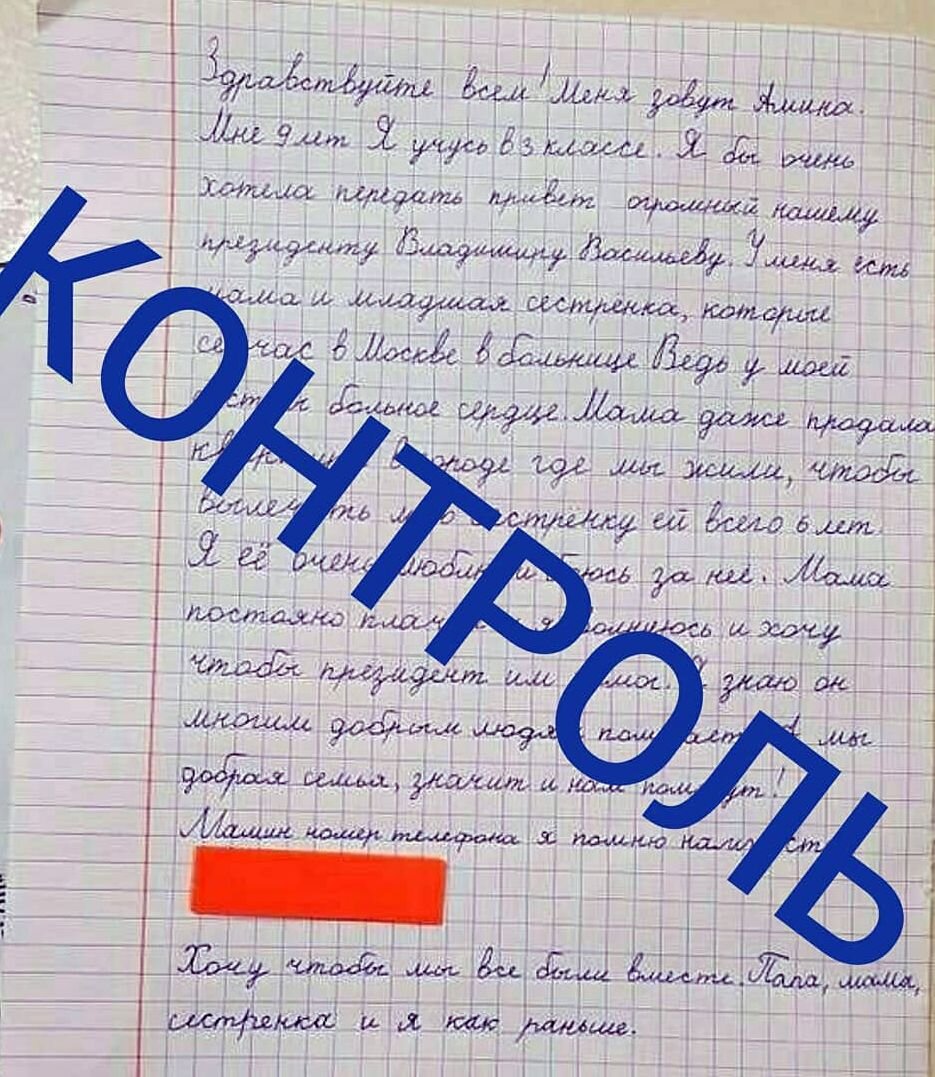 Здравствуйте всем! Меня зовут Амина.
Мне 9 лет Я учусь в 3 классе. Я бы очень
хотела передать привет огромный нашему
президенту Владимиру Васильеву. У меня есть
мама и младшая сестренка, которые
сейчас в Москве в больнице Ведь у моей
сестры больное сердце. Мама даже продала
квартиру в городе где мы жили, чтобы
вылечить мою сестренку ей всего 6 лет.
Я её очень люблю и боюсь за неё. Мама
постояно плачет я волнуюсь и хочу
чтобы президент им помог. Я знаю он
многим добрым людям помогает. А мы
добрая семья, значит и нам помогут!
Мамин номер телефона я помню наизусть
Хочу чтобы мы все были вместе. Папа, мама,
сестренка и я как раньше.
КОНТРОЛЬ